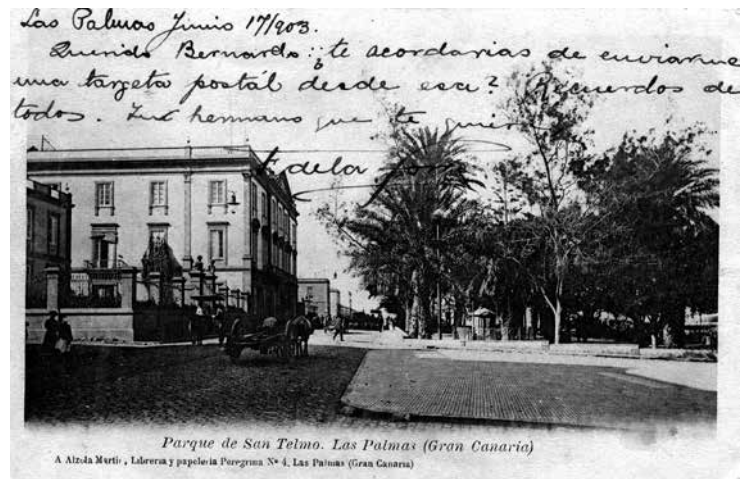 Las Palmas Junio 17/903.
Querido Bernardo: ¿te acordarias de enviarme
una targeta postál desde esa? Recuerdos de
todos. Tu hermano que te quiere
Parque de San Telmo. Las Palmas (Gran Canaria)
A Alzola Martin, Libreria y papeleria Peregrina Nº 4, Las Palmas (Gran Canaria)